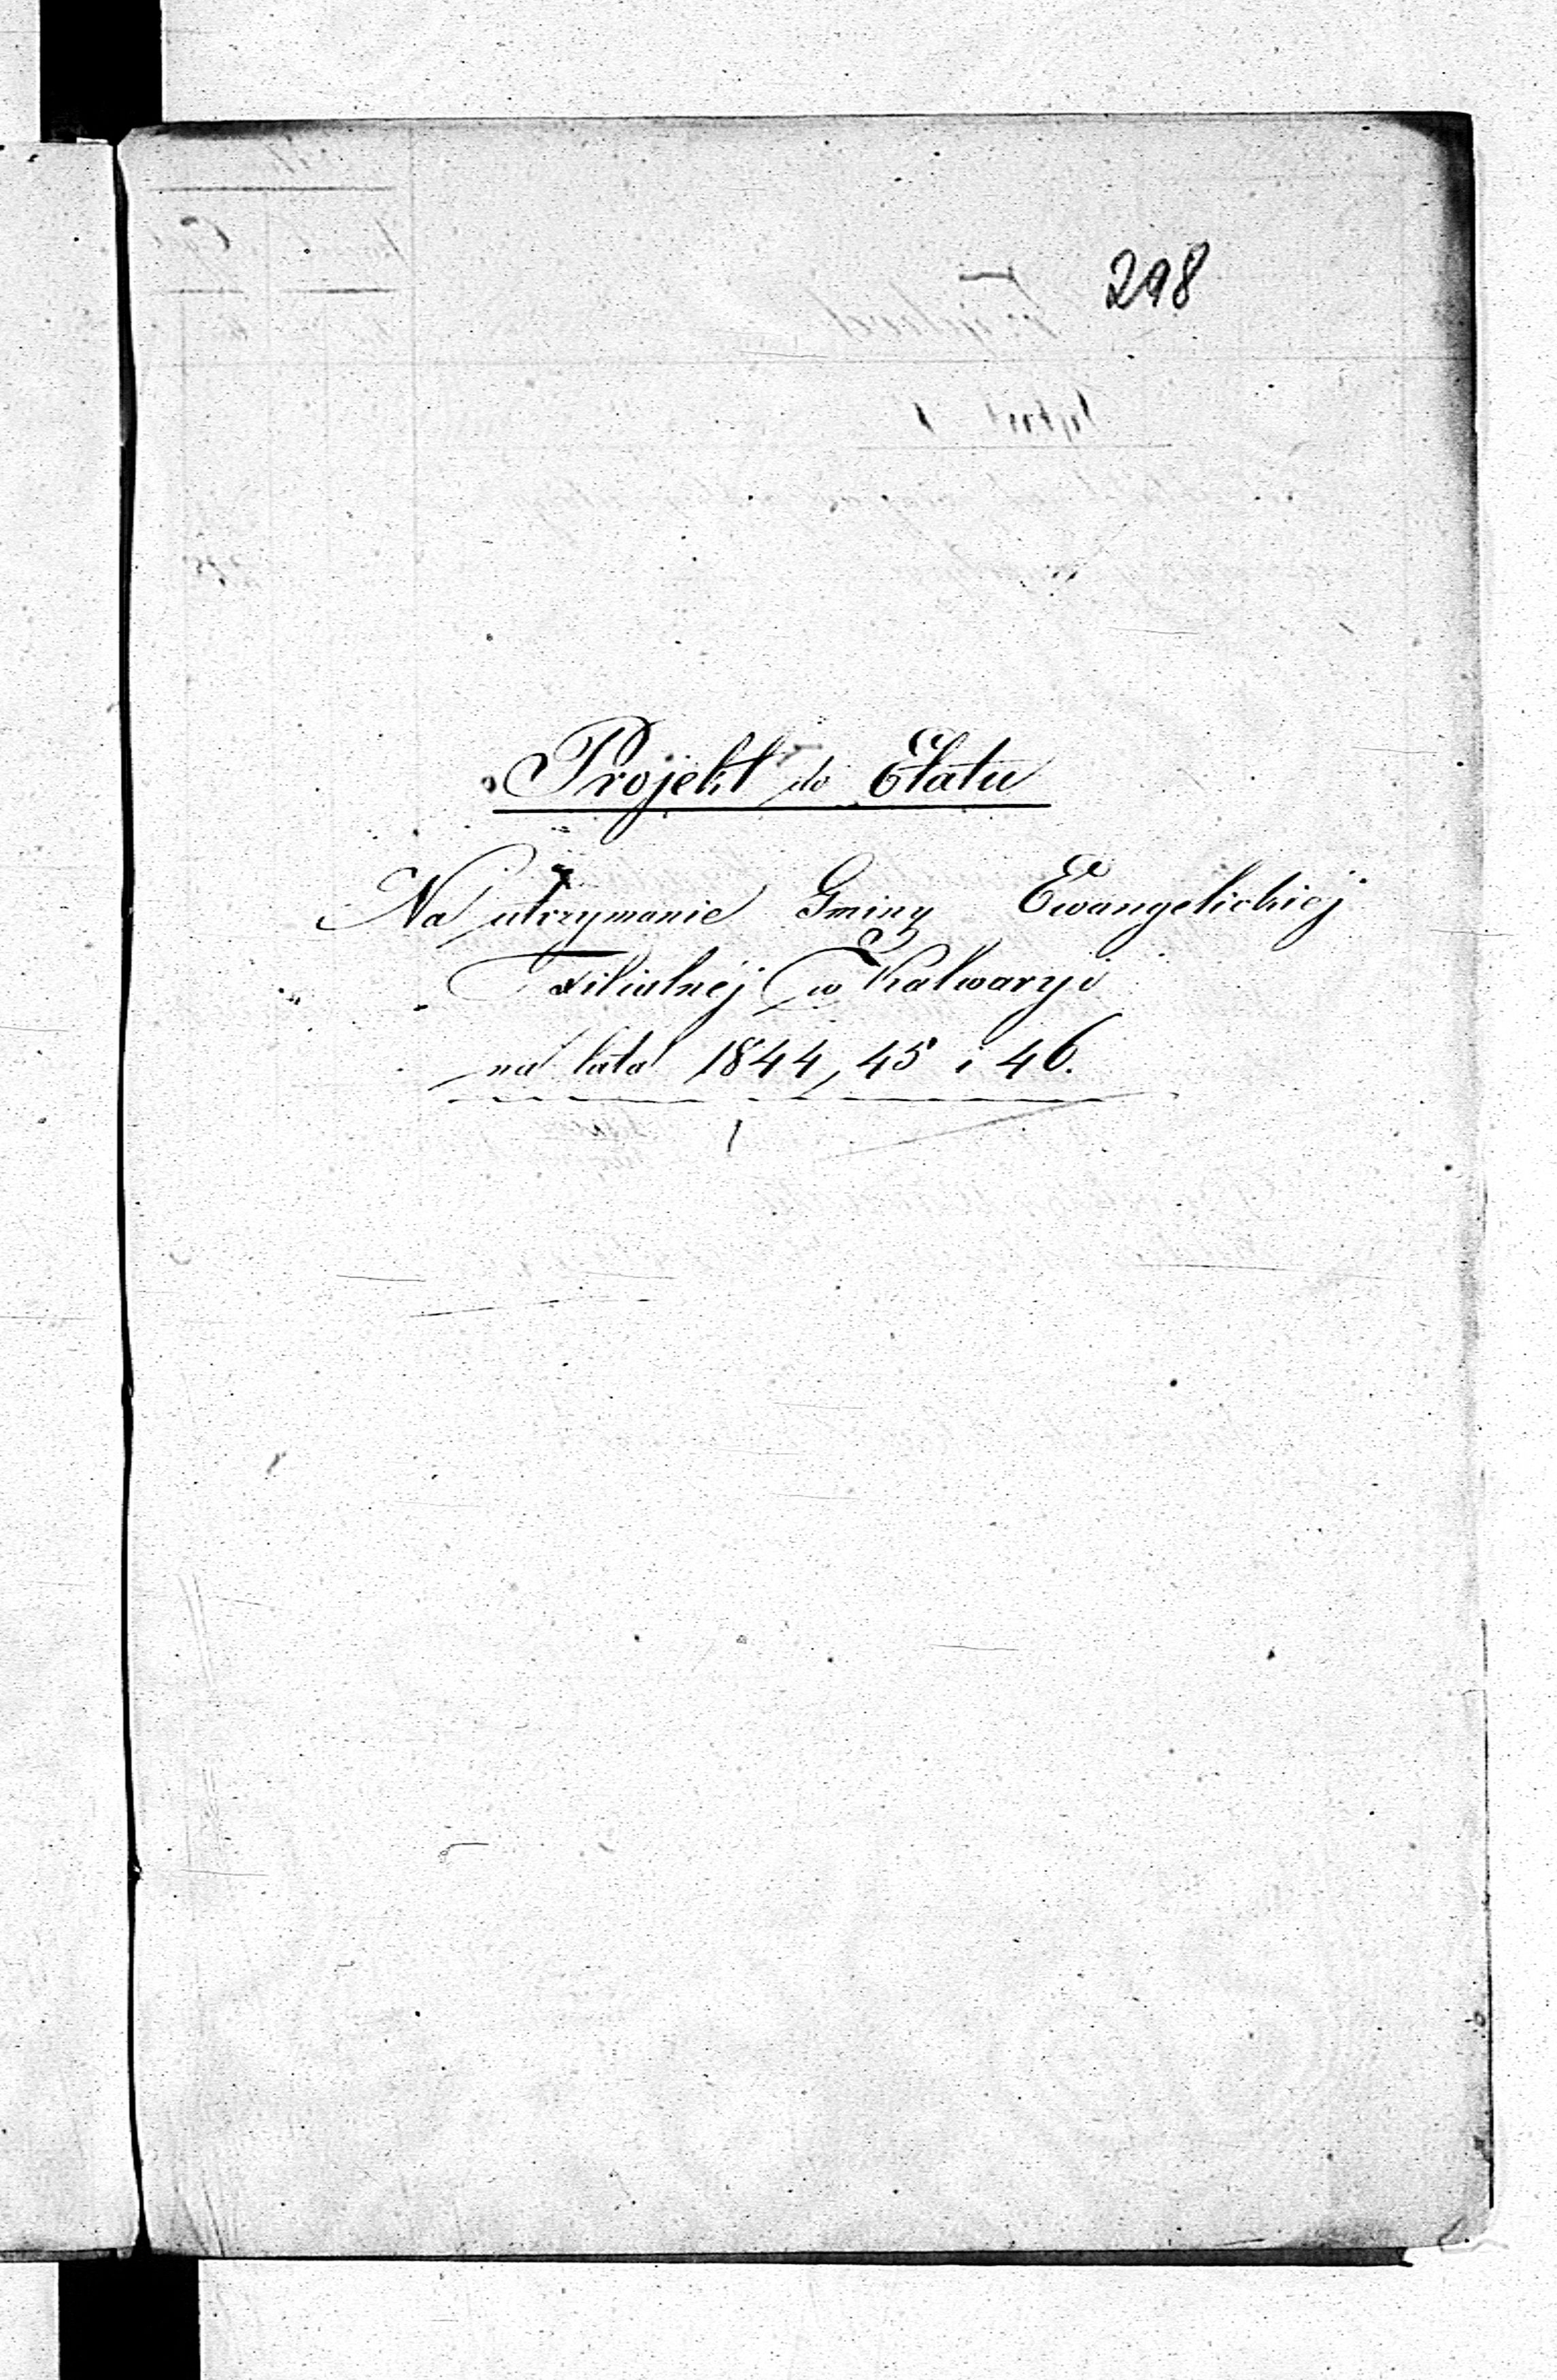 298
Projekt do Etatu
Na utrzymanie Gminy Ewangelickiéj
Filialnéj w Kalwaryi
na lata 1844, 45 i 46.